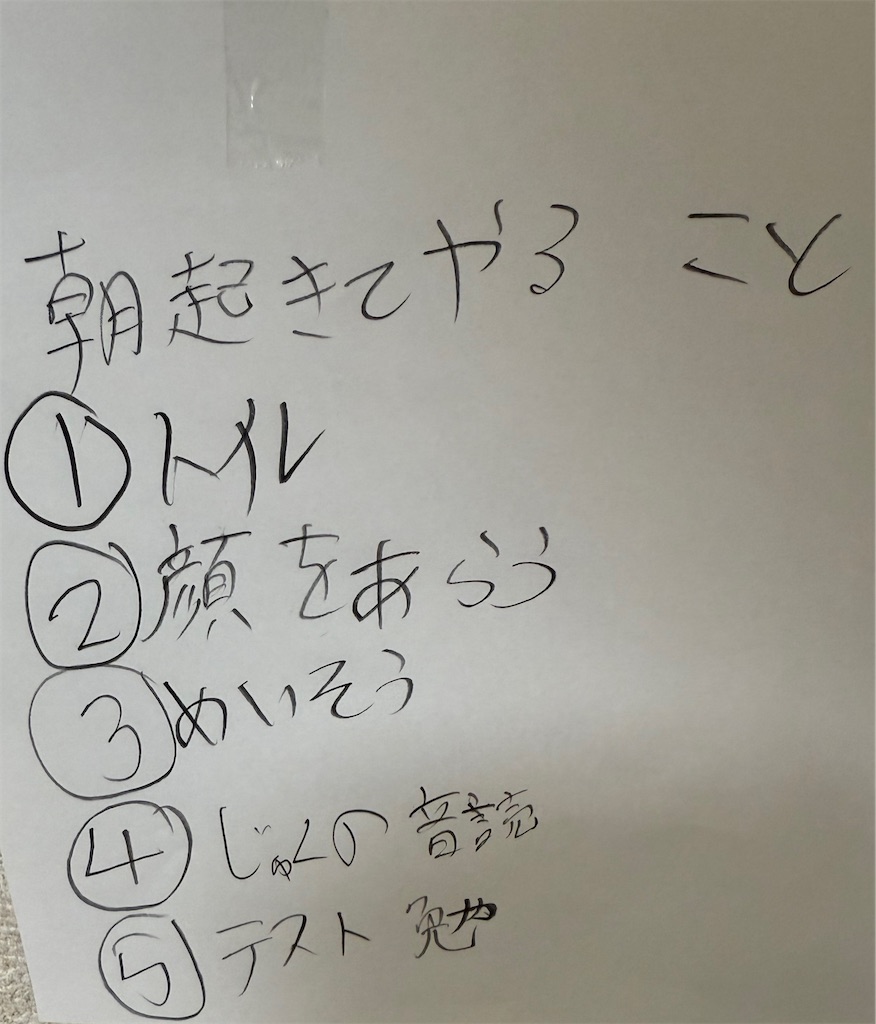 朝起きてやること
①トイレ
②顔をあらう
③めいそう
④じゅくの音読
⑤テスト勉